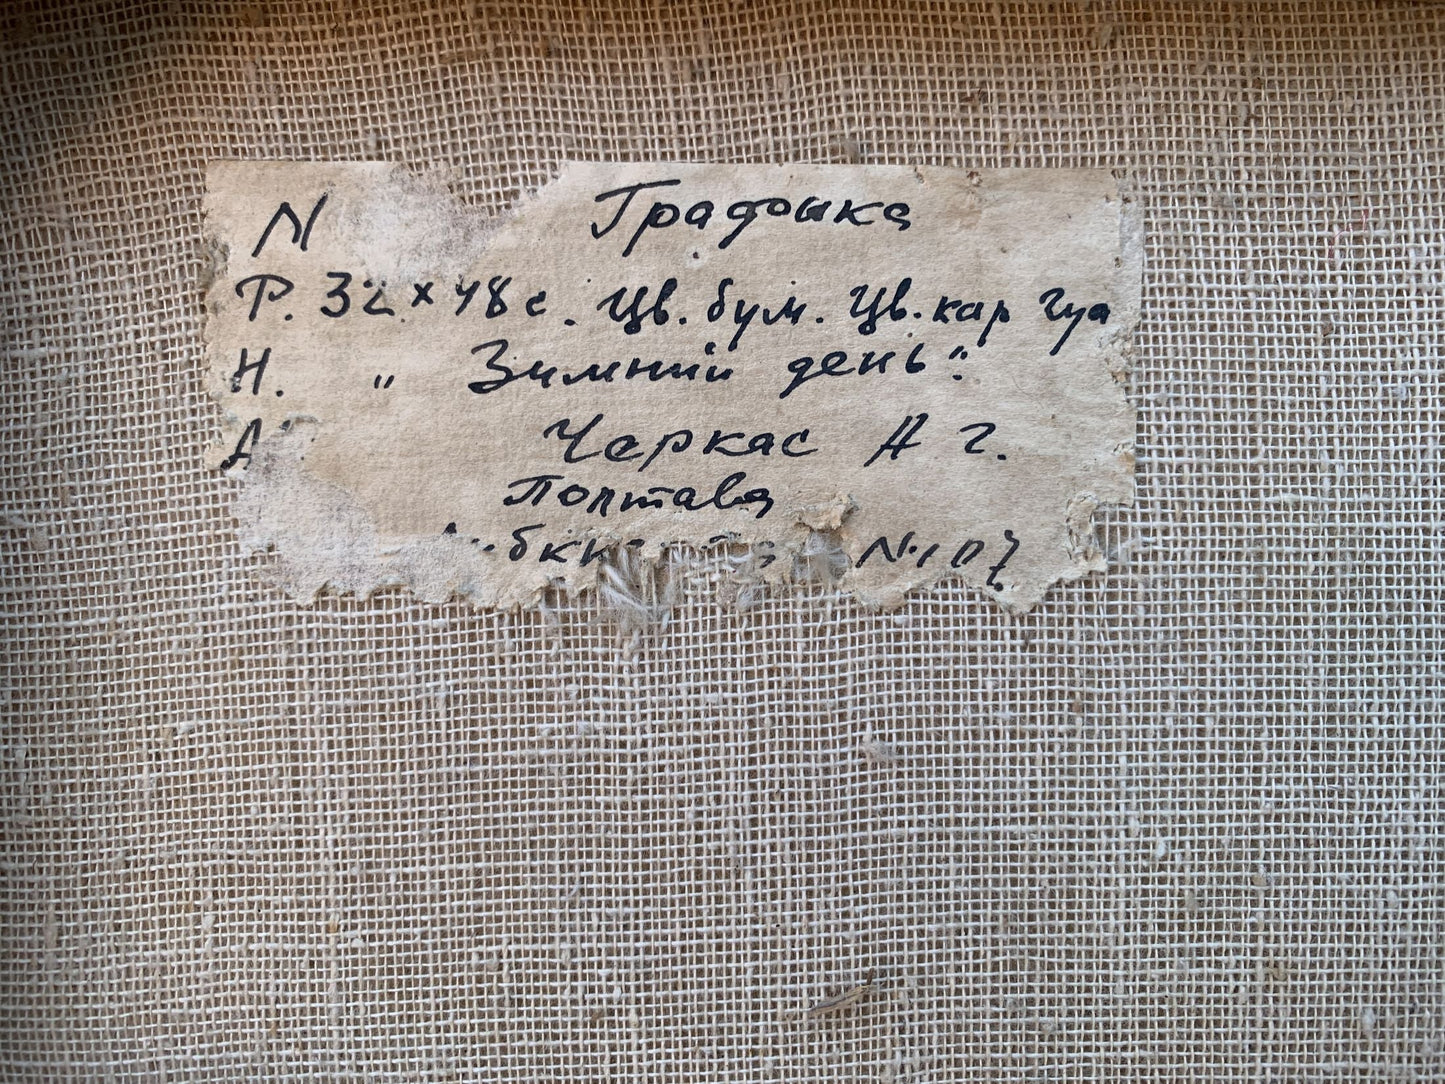 N Градоыка
Р. 32 × 48 с. Цв. бум. Цв. кар гуа
Н. „ Зимний день".
А Черкас А Г.
Полтава
№ 107